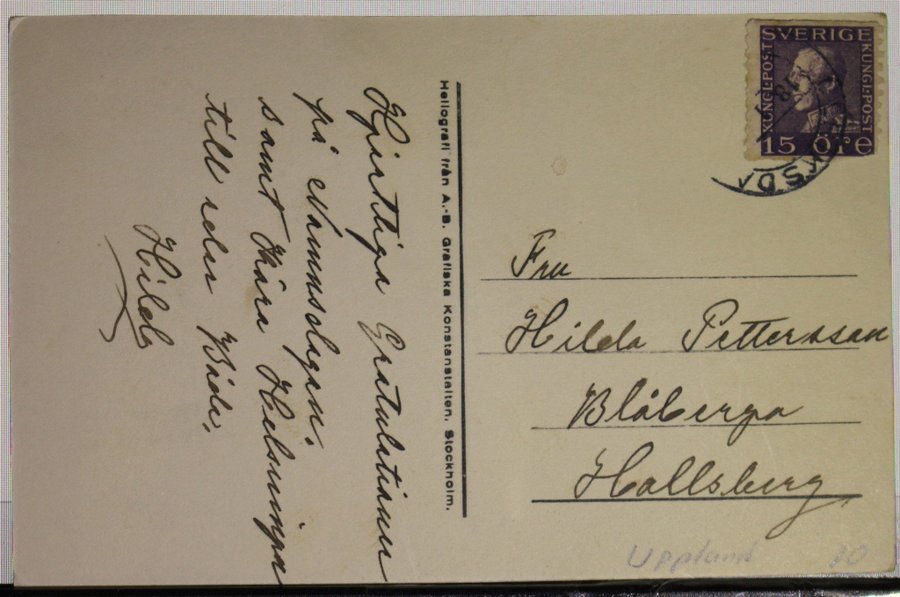 Hjertliga Gratulationer
på Namnsdagen.
samt Kära Helsningar
till eder Båda,
Hilda
Heliografi från A.-B. Grafiska Konstanstalten, Stockholm.
SVERIGE
KUNGL·POST
KUNGL·POST
15 ÖRE
Fru
Hilda Pettersson
Blåberga
Hallsberg
Uppland 30